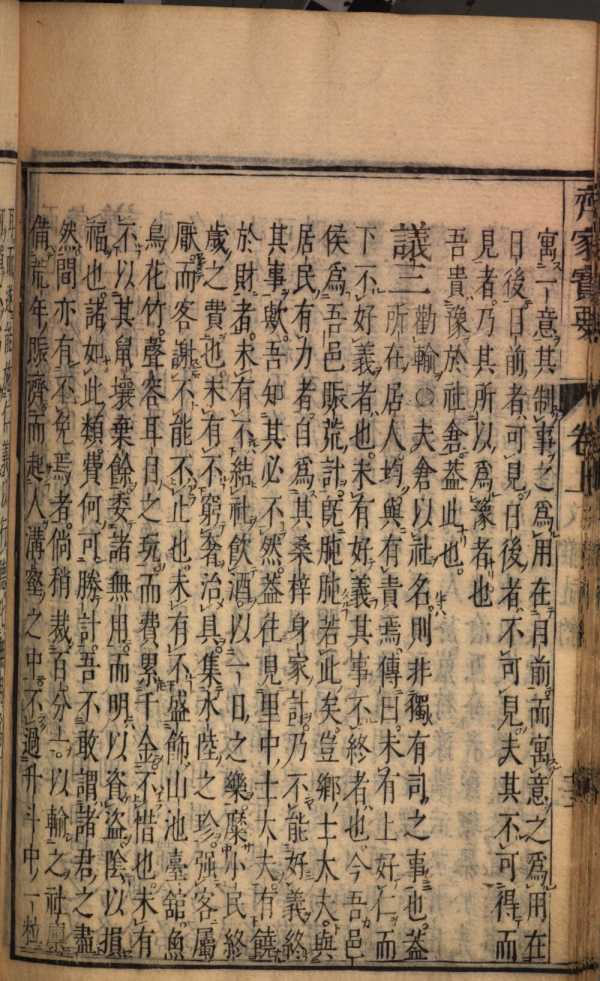 齊家寶要 卷上
寓一意其制事之爲用在目前而寓意之爲用在
日後目前者可見日後者不可見夫其不可得而
見者乃其所以爲豫者也
吾貴豫於社倉蓋此也
議三 勸輸○夫倉以社名則非獨有司之事也蓋
所在居人均與有責焉傳曰未有上好仁而
下不好義者也未有好義其事不終者也今吾邑
侯爲吾邑賑荒計既肫肫若此矣豈鄉士大夫與
居民有力者自爲其桑梓身家計乃不能好義終
其事歟吾知其必不然蓋往見里中士大夫有饒
於財者未有不結社飲酒以一日之樂糜小民終
歲之費也未有不窮奢治具集水陸之珍强客屬
厭而客謝不能不止也未有不盛飾山池臺舘魚
鳥花竹聲容耳目之玩而費累千金不惜也未有
不以其鼠壤棄餘委諸無用而明以瓷盜陰以損
福也諸如此類費何可勝計吾不敢謂諸君之盡
然間亦有不免焉者倘稍裁百分一以輸之社
備荒年賑濟而起人溝壑之中不過升斗中一粒